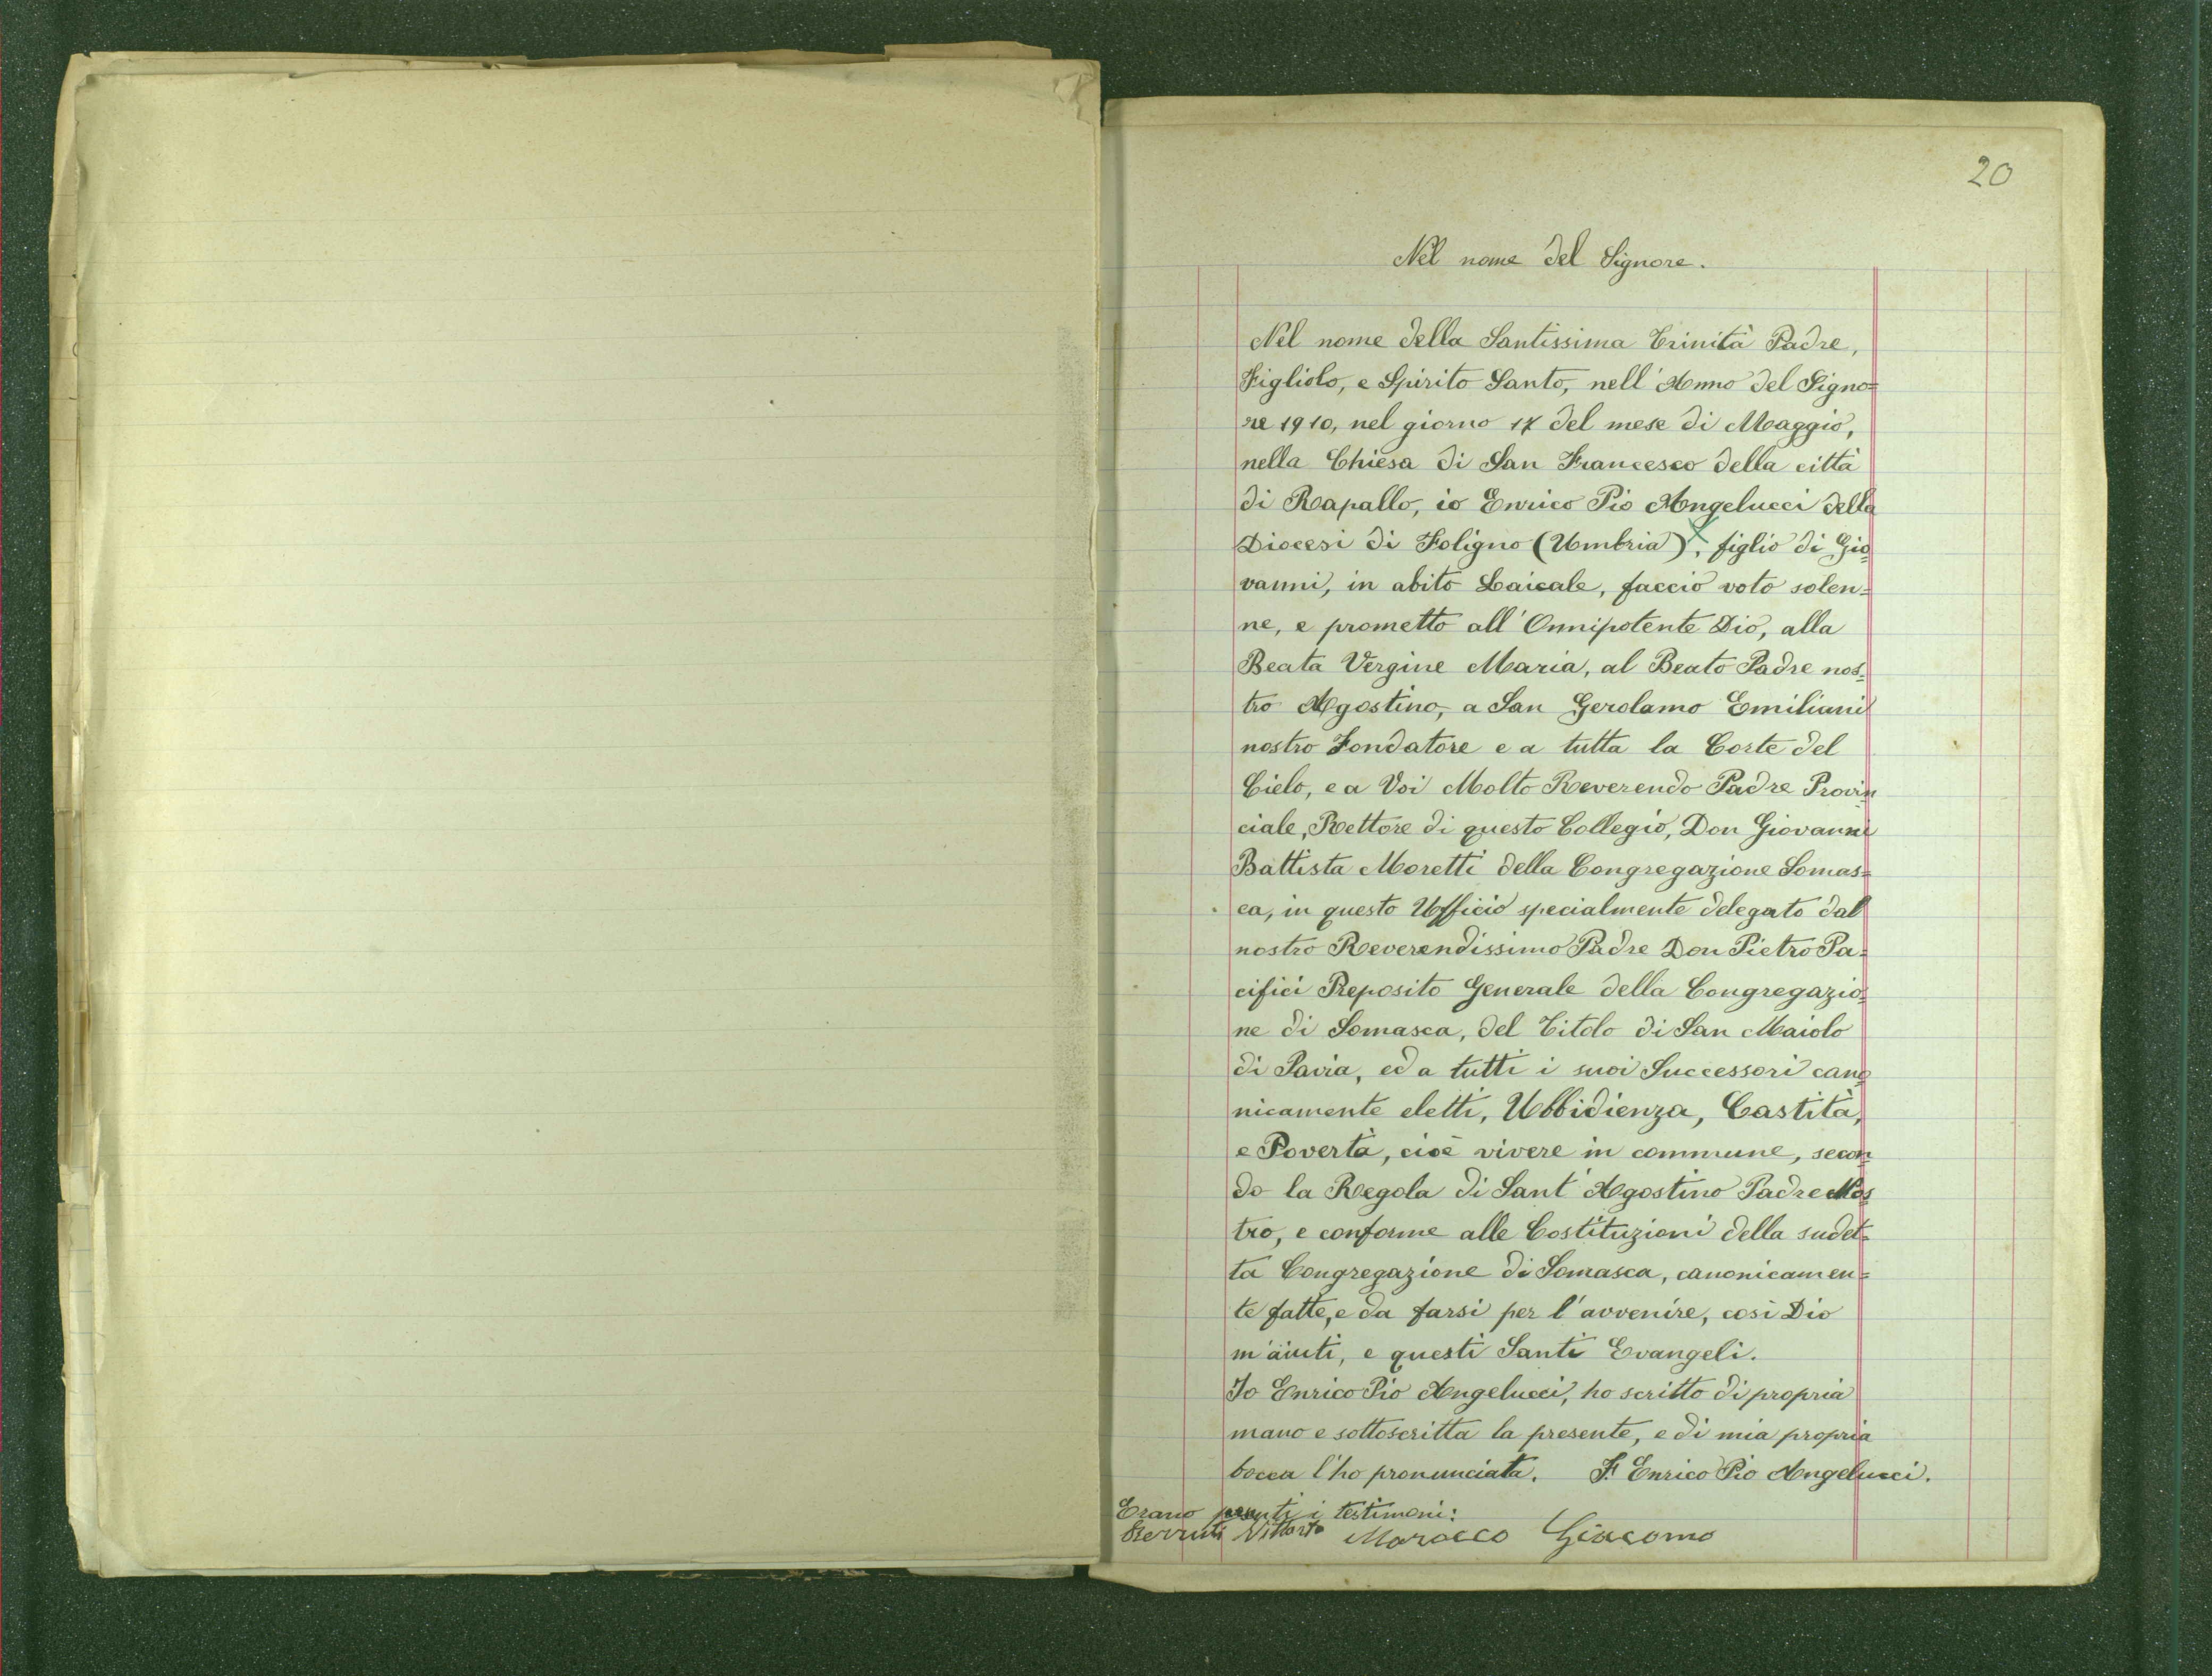 20
Nel nome del Signore.
Nel nome della Santissima Trinità Padre,
Figliolo, e Spirito Santo, nell'Anno del Signo=
re 1910, nel giorno 17 del mese di Maggio,
nella Chiesa di San Francesco della città
di Rapallo, io Enrico Pio Angelucci della
Diocesi di Foligno (Umbria), figlio di Gio=
vanni, in abito Laicale, faccio voto solen=
ne, e prometto all'Onnipotente Dio, alla
Beata Vergine Maria, al Beato Padre nos=
tro Agostino, a San Gerolamo Emiliani
nostro Fondatore e a tutta la Corte del
Cielo, e a Voi Molto Reverendo Padre Provin
ciale, Rettore di questo Collegio, Don Giovanni
Battista Moretti della Congregazione Somas=
ca, in questo Ufficio specialmente delegato dal
nostro Reverendissimo Padre Don Pietro Pa=
cifici Preposito Generale della Congregazio=
ne di Somasca, del Titolo di San Maiolo
di Pavia, ed a tutti i suoi Successori cano
nicamente eletti, Ubbidienza, Castità,
e Povertà, cioè vivere in commune, secon
do la Regola di Sant'Agostino Padre Nos
tro, e conforme alle Costituzioni della sudet=
ta Congregazione di Somasca, canonicamen=
te fatte, e da farsi per l'avvenire, così Dio
m'aiuti, e questi Santi Evangeli.
Io Enrico Pio Angelucci, ho scritto di propria
mano e sottoscritta la presente, e di mia propria
bocca l'ho pronunciata. F. Enrico Pio Angelucci.
Erano i testimoni:
Marocco Giacomo